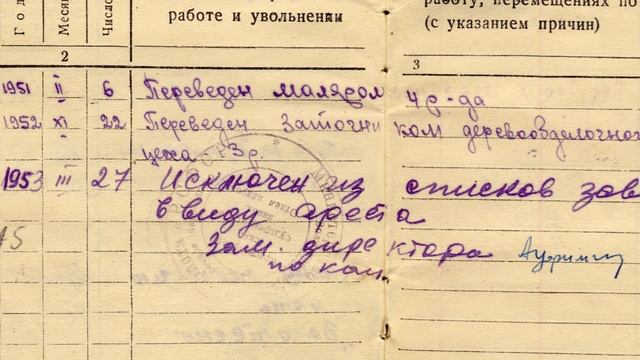 Год Месяц Число работе и увольнении работу, перемещениях по
(с указанием причин)
2 3
1951 II 6 Переведен маляром 4 р-да
1952 XI 22 Переведен Заточником деревообделочног
цеха 3р.
1953 III 27 Исключен из списков зав
ввиду ареста
Зам. директора
по кад